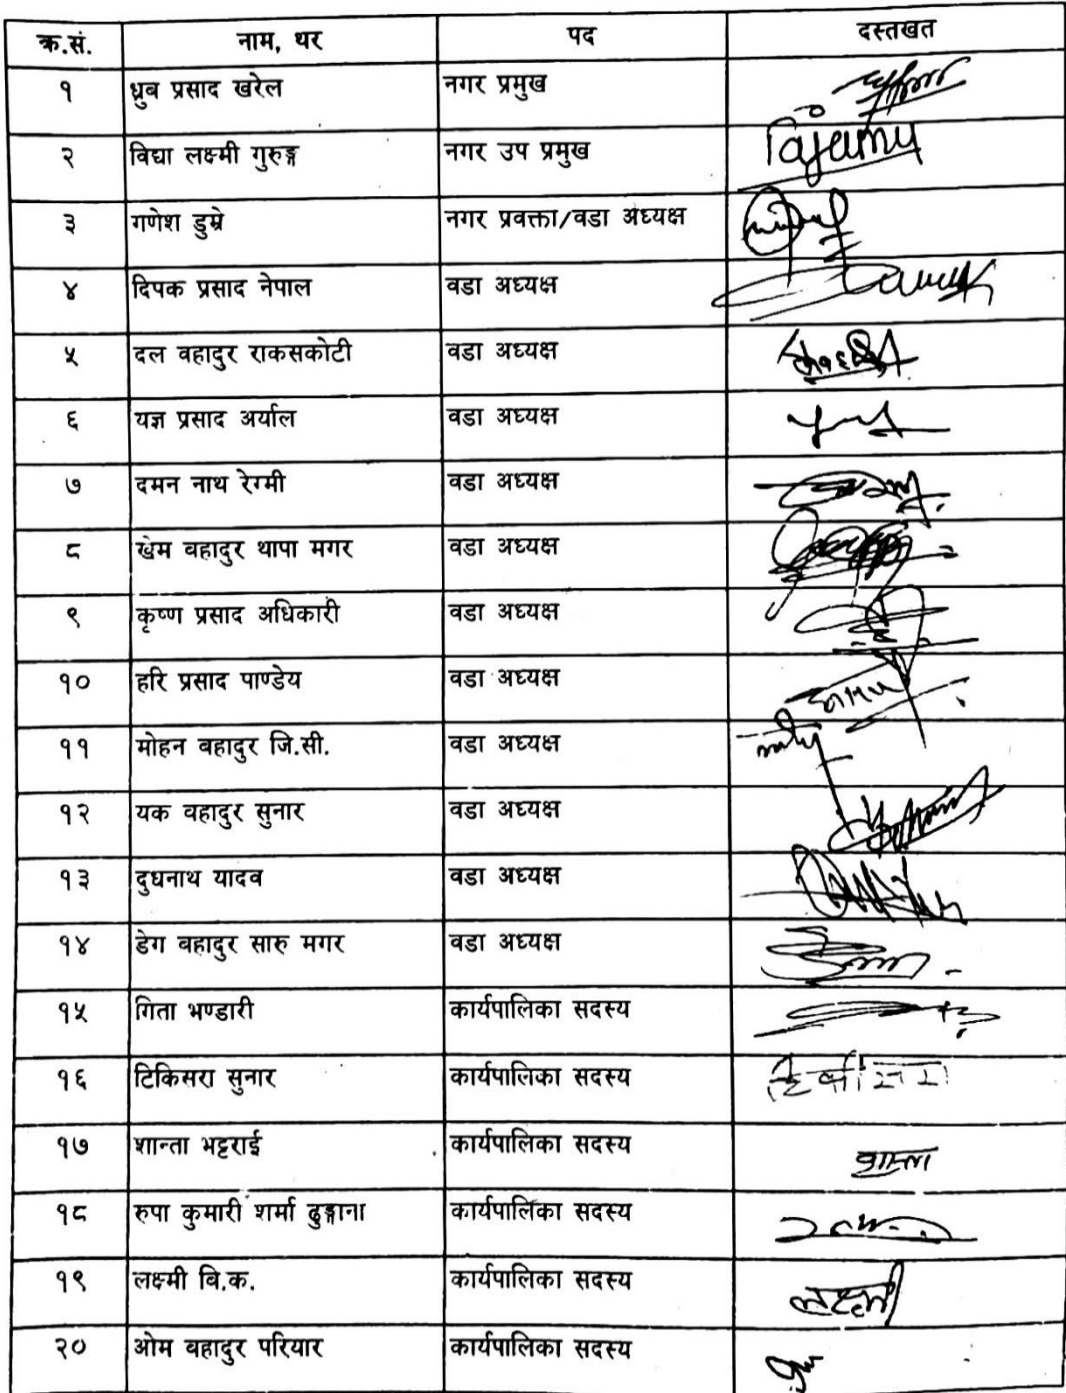 क्र.सं. नाम, थर पद दस्तखत
१ ध्रुब प्रसाद खरेल नगर प्रमुख
२ विद्या लक्ष्मी गुरुङ्ग नगर उप प्रमुख
३ गणेश डुम्रे नगर प्रवक्ता/वडा अध्यक्ष
४ दिपक प्रसाद नेपाल वडा अध्यक्ष
५ दल वहादुर राकसकोटी वडा अध्यक्ष
६ यज्ञ प्रसाद अर्याल वडा अध्यक्ष
७ दमन नाथ रेग्मी वडा अध्यक्ष
८ खेम बहादुर थापा मगर वडा अध्यक्ष
९ कृष्ण प्रसाद अधिकारी वडा अध्यक्ष
१० हरि प्रसाद पाण्डेय वडा अध्यक्ष
११ मोहन बहादुर जि.सी. वडा अध्यक्ष
१२ यक वहादुर सुनार वडा अध्यक्ष
१३ दुधनाथ यादव वडा अध्यक्ष
१४ डेग बहादुर सारु मगर वडा अध्यक्ष
१५ गिता भण्डारी कार्यपालिका सदस्य
१६ टिकिसरा सुनार कार्यपालिका सदस्य
१७ शान्ता भट्टराई कार्यपालिका सदस्य शान्ता
१८ रुपा कुमारी शर्मा ढुङ्गाना कार्यपालिका सदस्य
१९ लक्ष्मी बि.क. कार्यपालिका सदस्य लक्ष्मी
२० ओम बहादुर परियार कार्यपालिका सदस्य